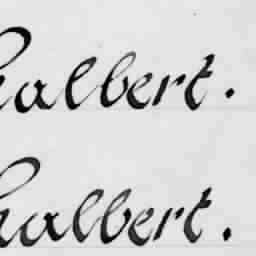 halbert.
halbert.